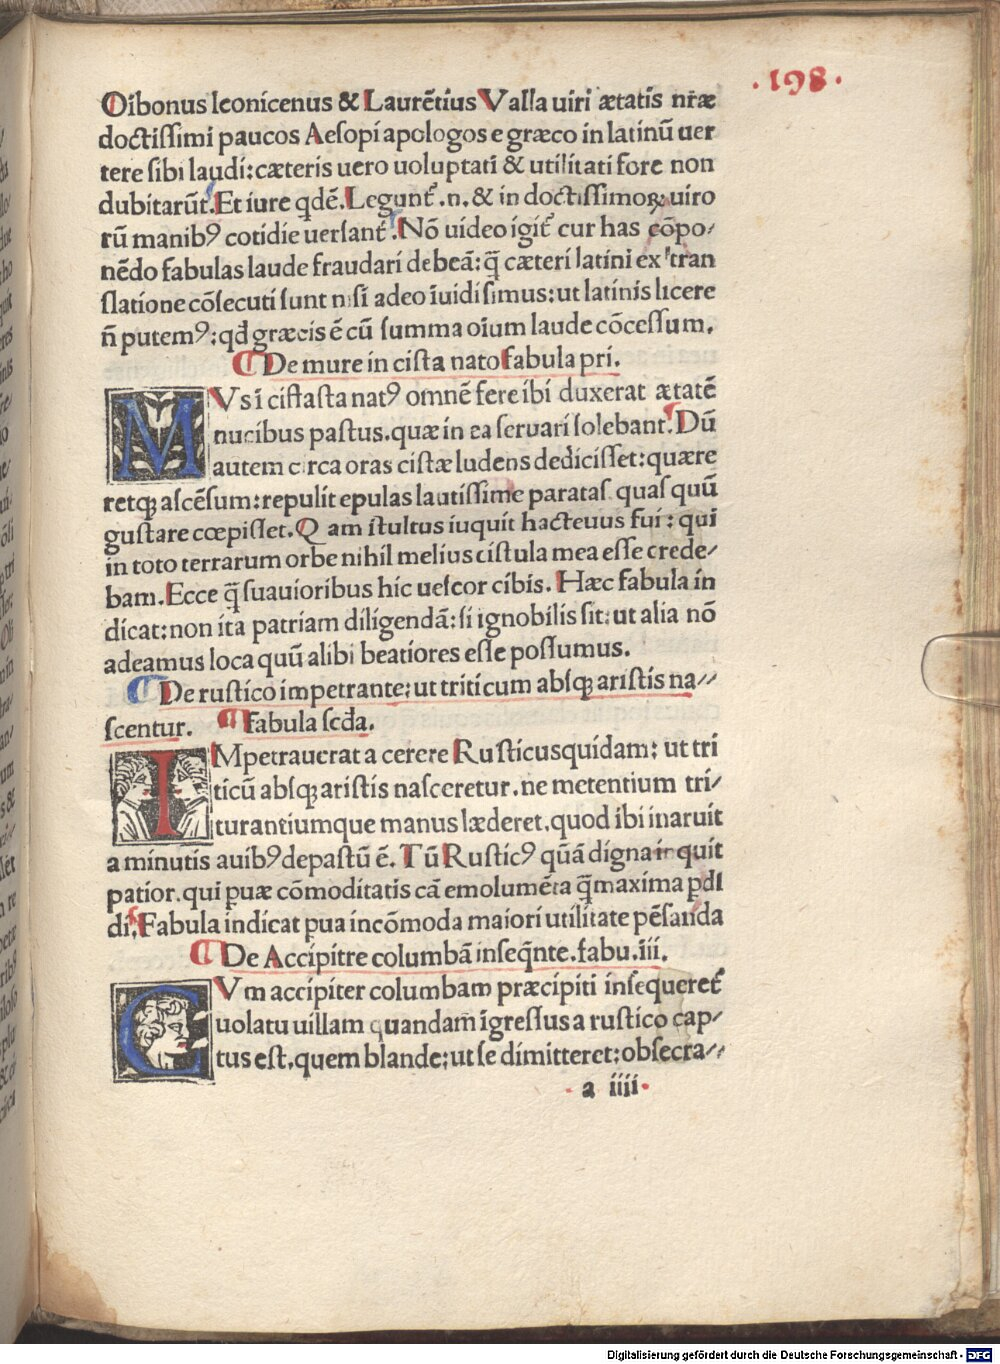 .198.
Oibonus leonicenus & Laurẽtius Valla uiri ætatis nr̃æ
doctiſſimi paucos Aeſopi apologos e græco in latinũ uer
tere ſibi laudi: cæteris uero uoluptati & utilitati fore non
dubitarũt. Et iure qdẽ. Legunt᷑ .n. & in doctiſſimoꝝ uiro
rũ manibꝰ cotidie uerſant᷑. Nõ uideo igit᷑ cur has cõpo⸗
nẽdo fabulas laude fraudari debeã: q̃ cæteri latini ex tran
ſlatione cõſecuti ſunt niſi adeo ĩuidi ſimus: ut latinis licere
ñ putemꝰ: qđ græcis ẽ cũ ſumma oĩum laude cõceſſum.
¶ De mure in ciſta nato fabula pri.
MVs ĩ ciſta ſta natꝰ omnẽ fere ibi duxerat ætatẽ
nucibus paſtus. quæ in ea ſeruari ſolebant. Dũ
autem circa oras ciſtæ ludens dediciſſet: quære
retqꝫ aſcẽſum: repulit epulas lautiſſime paratas quas quũ
guſtare cœpiſſet. Q am ſtultus iuquit hacteuus fui: qui
in toto terrarum orbe nihil melius ciſtula mea eſſe crede⸗
bam. Ecce q̃ ſuauioribus hic ueſcor cibis. Hæc fabula in
dicat: non ita patriam diligendã: ſi ignobilis ſit: ut alia nõ
adeamus loca quũ alibi beatiores eſſe poſſumus.
¶ De ruſtico impetrante: ut triticum abſqꝫ ariſtis na⸗
ſcentur. ¶ fabula ſcđa.
IMpetrauerat a cerere Ruſticus quidam: ut tri
ticũ abſqꝫ ariſtis naſceretur. ne metentium tri⸗
turantiumque manus læderet. quod ibi inaruit
a minutis auibꝰ depaſtũ ẽ. Tũ Ruſticꝰ quã digna inquit
patior. qui puæ cõmoditatis cã emolumẽta q̃ maxima pđi
di. Fabula indicat pua incõmoda maiori utilitate pẽſanda
¶ De Accipitre columbã inſeq̃nte. fabu. iii.
CVm accipiter columbam præcipiti inſequeret᷑
uolatu uillam quandam ĩgreſſus a ruſtico cap⸗
tus eſt. quem blande: ut ſe dimitteret: obſecra⸗
a iiii
Digitalisierung gefördert durch die Deutsche Forschungsgemeinschaft - DFG